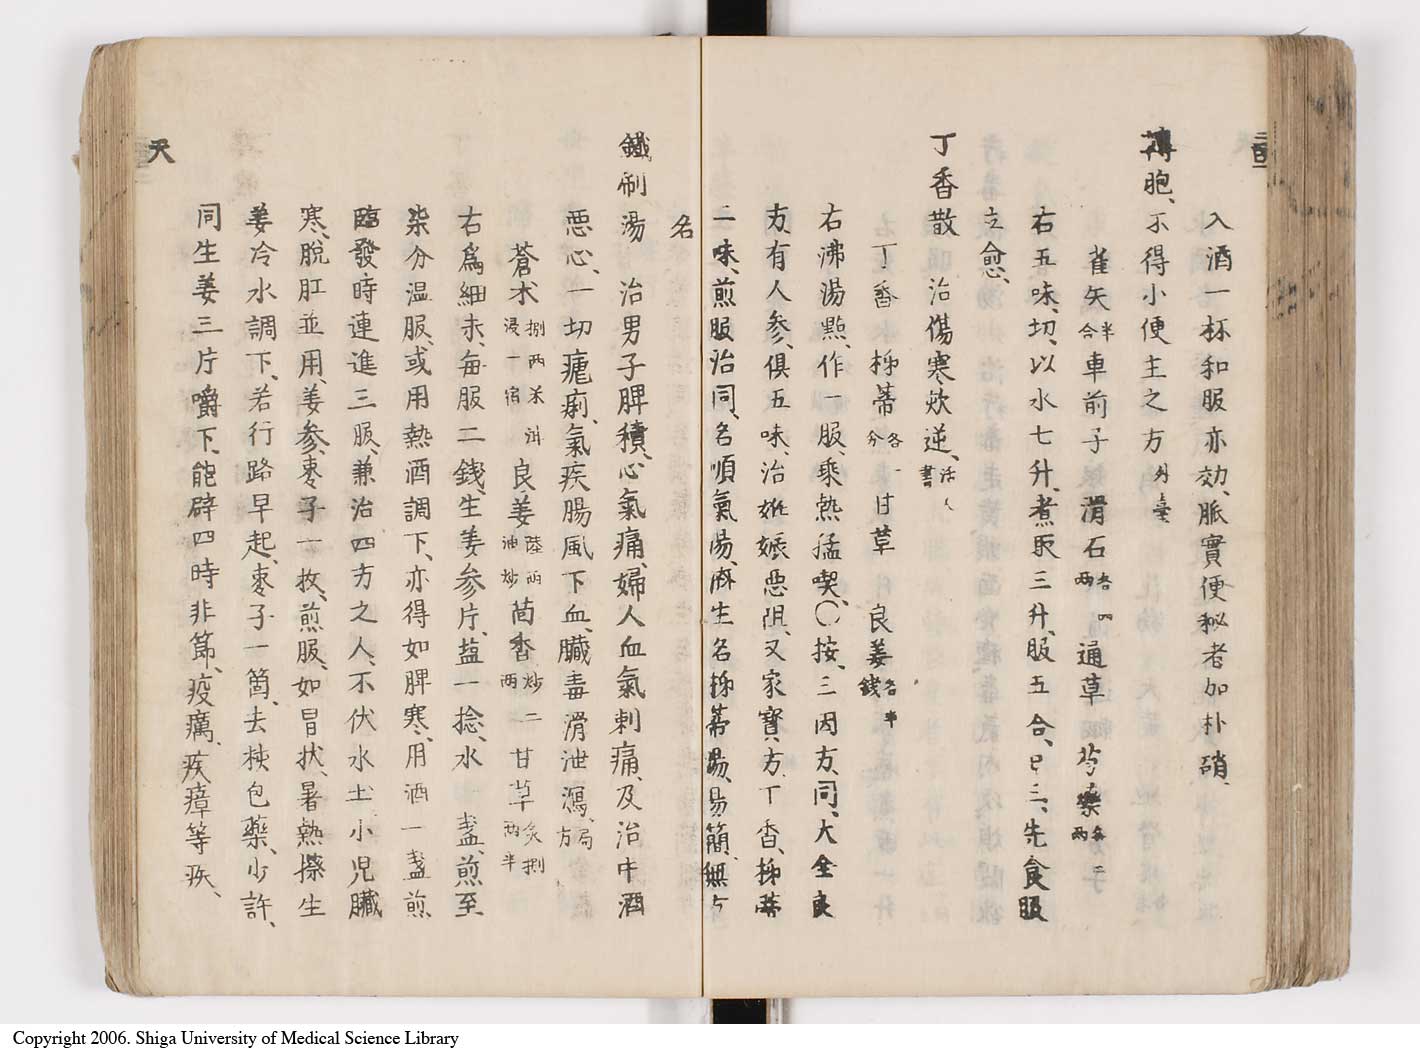 入酒一杯和服亦効、脈實便秘者加朴硝、
薄胞、不得小便主之方 外臺
雀矢半合 車前子 滑石各四兩 通草 芍藥各二兩
右五味、切、以水七升、煮取三升、服五合、日三、先食服
立愈、
丁香散 治傷寒欬逆、活〻書
丁香 柹蒂各一分 甘草 良姜各半錢
右沸湯點、作一服、乘熱猛喫、〇按、三因方、同、大全良
方有人參、俱五味、治姙娠惡阻、又家寶方、丁香、柹蒂
二味、煎服治同、名順氣湯、麻生名柹蒂湯、易簡、無方
名
鐵刷湯 治男子脾積、心氣痛、婦人血氣刺痛、及治中酒
惡心、一切瘧痢、氣疾腸風下血、臓毒滑泄瀉、局方
蒼朮捌兩米泔浸一宿 良姜陸兩油炒 茴香炒二兩 甘草炙捌兩半
右爲細末、每服二錢、生姜參片、盐一捻、水一盞、煎至
柒分温服、或用熱酒調下、亦得如脾寒、用酒一盞煎
臨發時連進三服、兼治四方之人、不伏水土小兒臓
寒、脱肛並用、姜參、棗子一枚、煎服、如冒状、暑熱擦生
姜冷水調下、若行路早起、棗子一箇、去核包藥、少許、
同生姜三片嚼下、能辟四時非節、疫癘、疾瘴等疾、
天